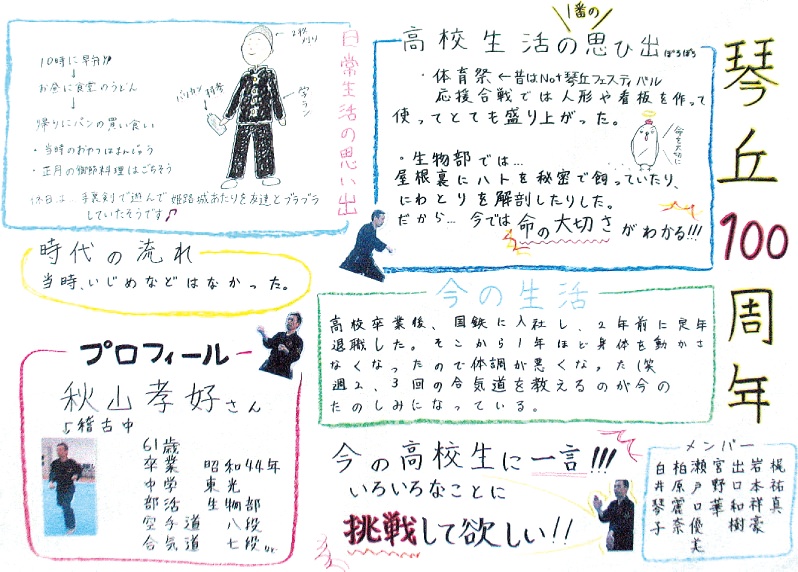 琴丘100周年
1番の
高校生活の思ひ出ぽろぽろ
・体育祭 ← 昔はNot琴丘フェスティバル
応援合戦では人形や看板を作って
使ってとても盛り上がった。
・生物部では…
屋根裏にハトを秘密で飼っていたり、
にわとりを解剖したりした。
だから… 今では命の大切さがわかる!!!
命を大切に
日常生活の思い出
10時に早弁
↓
お昼に食堂のうどん
↓
帰りにパンの買い食い
・当時のおやつはまんじゅう
・正月の御節料理はごちそう
休日は、手裏剣で遊んで姫路城あたりを友達とブラブラ
していたそうです♪
学ラン
時代の流れ
当時、いじめなどはなかった。
今の生活
高校卒業後、国鉄に入社し、2年前に定年
退職した。そこから1年ほど身体を動かさ
なくなったので体調が悪くなった(笑
週2、3回の合気道を教えるのが今の
たのしみになっている。
プロフィール
秋山孝好さん
稽古中
61歳
卒業 昭和44年
中学 東光
部活 生物部
空手道 八段
合気道 七段
今の高校生に一言!!!
いろいろなことに
挑戦して欲しい!!
メンバー
梶祐真
岩本祥豪
出口和樹
宮野華
瀬戸口優美
柏原麗奈
白井琴子